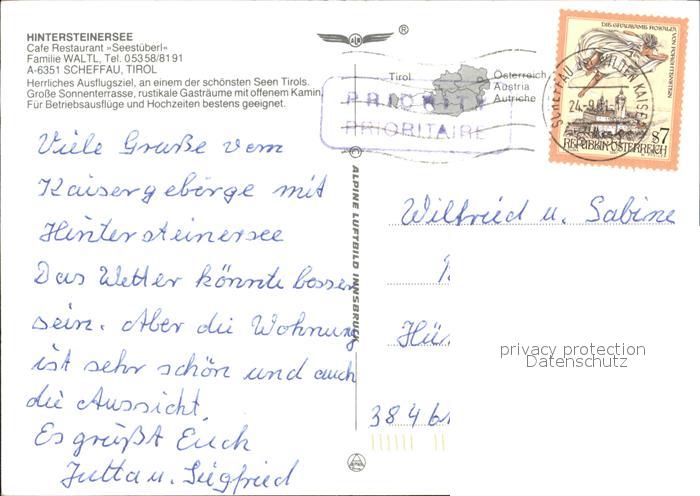 HINTERSTEINERSEE
Cafe Restaurant »Seestüberl«
Familie WALTL, Tel. 05358/8191
A-6351 SCHEFFAU, TIROL
Herrliches Ausflugsziel, an einem der schönsten Seen Tirols.
Große Sonnenterrasse, rustikale Gasträume mit offenem Kamin.
Für Betriebsausflüge und Hochzeiten bestens geeignet.
Viele Grüße vom
Kaisergebirge mit
Hintersteinersee
Das Wetter könnte besser
sein. Aber die Wohnung
ist sehr schön und auch
die Aussicht.
Es grüßt Euch
Jutta u. Siegfried
© ALPINE LUFTBILD INNSBRUCK
®
Tirol
Österreich
Austria
Autriche
PRIORITY
PRIORITAIRE
DIE GRAUSAME ROSALIA VON FORCHTENSTEIN
SCHEFFAU AM WILDEN KAISER
24.-9.01-17
S7
REPUBLIK ÖSTERREICH
Wilfried u. Sabine
Hü
384
privacy protection
Datenschutz